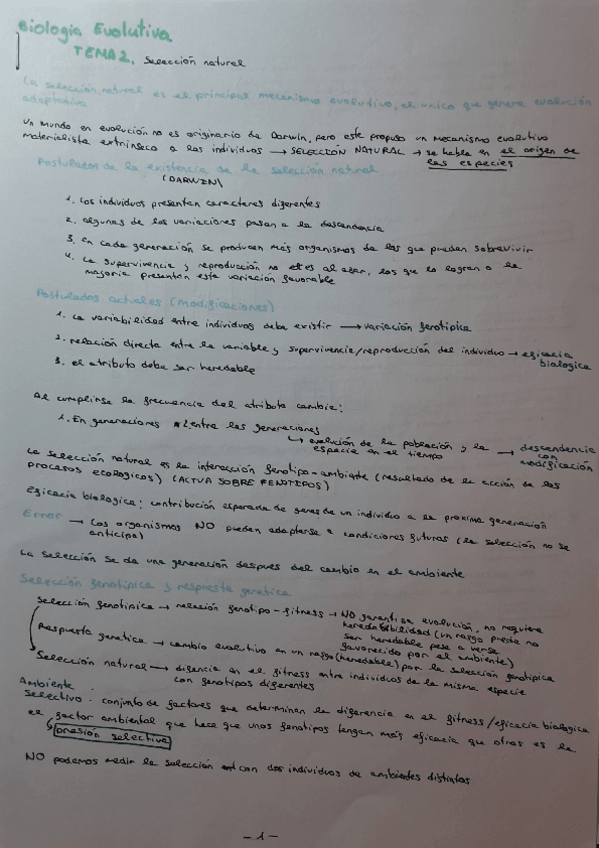 Biología Evolutiva
TEMA 2. Selección natural
La selección natural es el principal mecanismo evolutivo, el unico que genera evolución
adaptativa
Un mundo en evolución no es originario de Darwin, pero este propuso un mecanismo evolutivo
materialista extrinseco a los individuos → SELECCIÓN NATURAL → se habla en el origen de
las especies
Postulados de la existencia de la selección natural
(DARWIN)
1. Los individuos presentan caracteres diferentes
2. algunas de las variaciones pasan a la descendencia
3. en cada generación se producen más organismos de los que pueden sobrevivir
4. La supervivencia y reproducción no es al azar, los que lo logran o la
mayoria presentan esta variación favorable
Postulados actuales (modificaciones)
1. La variabilidad entre individuos debe existir → variación fenotipica
2. relación directa entre la variable y supervivencia/reproducción del individuo → eficacia
biologica
3. el atributo debe ser heredable
Al cumplirse la frecuencia del atributo cambia:
1. En generaciones 2. entre las generaciones
↳ evolución de la población y la
especie en el tiempo → descendencia
con
modificación
La selección natural es la interacción fenotipo-ambiente (resultado de la acción de los
procesos ecologicos) (ACTUA SOBRE FENOTIPOS)
Eficacia biologica: contribución esperada de genes de un individuo a la proxima generación
Error → Los organismos NO pueden adaptarse a condiciones futuras (la selección no se
anticipa)
La selección se da una generación despues del cambio en el ambiente
Selección fenotipica y respuesta genetica
Selección fenotipica → relación fenotipo-fitness → NO garantiza evolución, no requiere
heredabilidad (un rasgo puede no
ser heredable pese a verse
favorecido por el ambiente)
Respuesta genetica → cambio evolutivo en un rasgo (heredable) por la selección fenotipica
Selección natural → diferencia en el fitness entre individuos de la misma especie
con genotipos diferentes
Ambiente
selectivo: conjunto de factores que determinan la diferencia en el fitness/eficacia biologica
el factor ambiental que hace que unos fenotipos tengan más eficacia que otros es la
↳ presión selectiva
NO podemos medir la selección con dos individuos de ambientes distintos
- 1 -